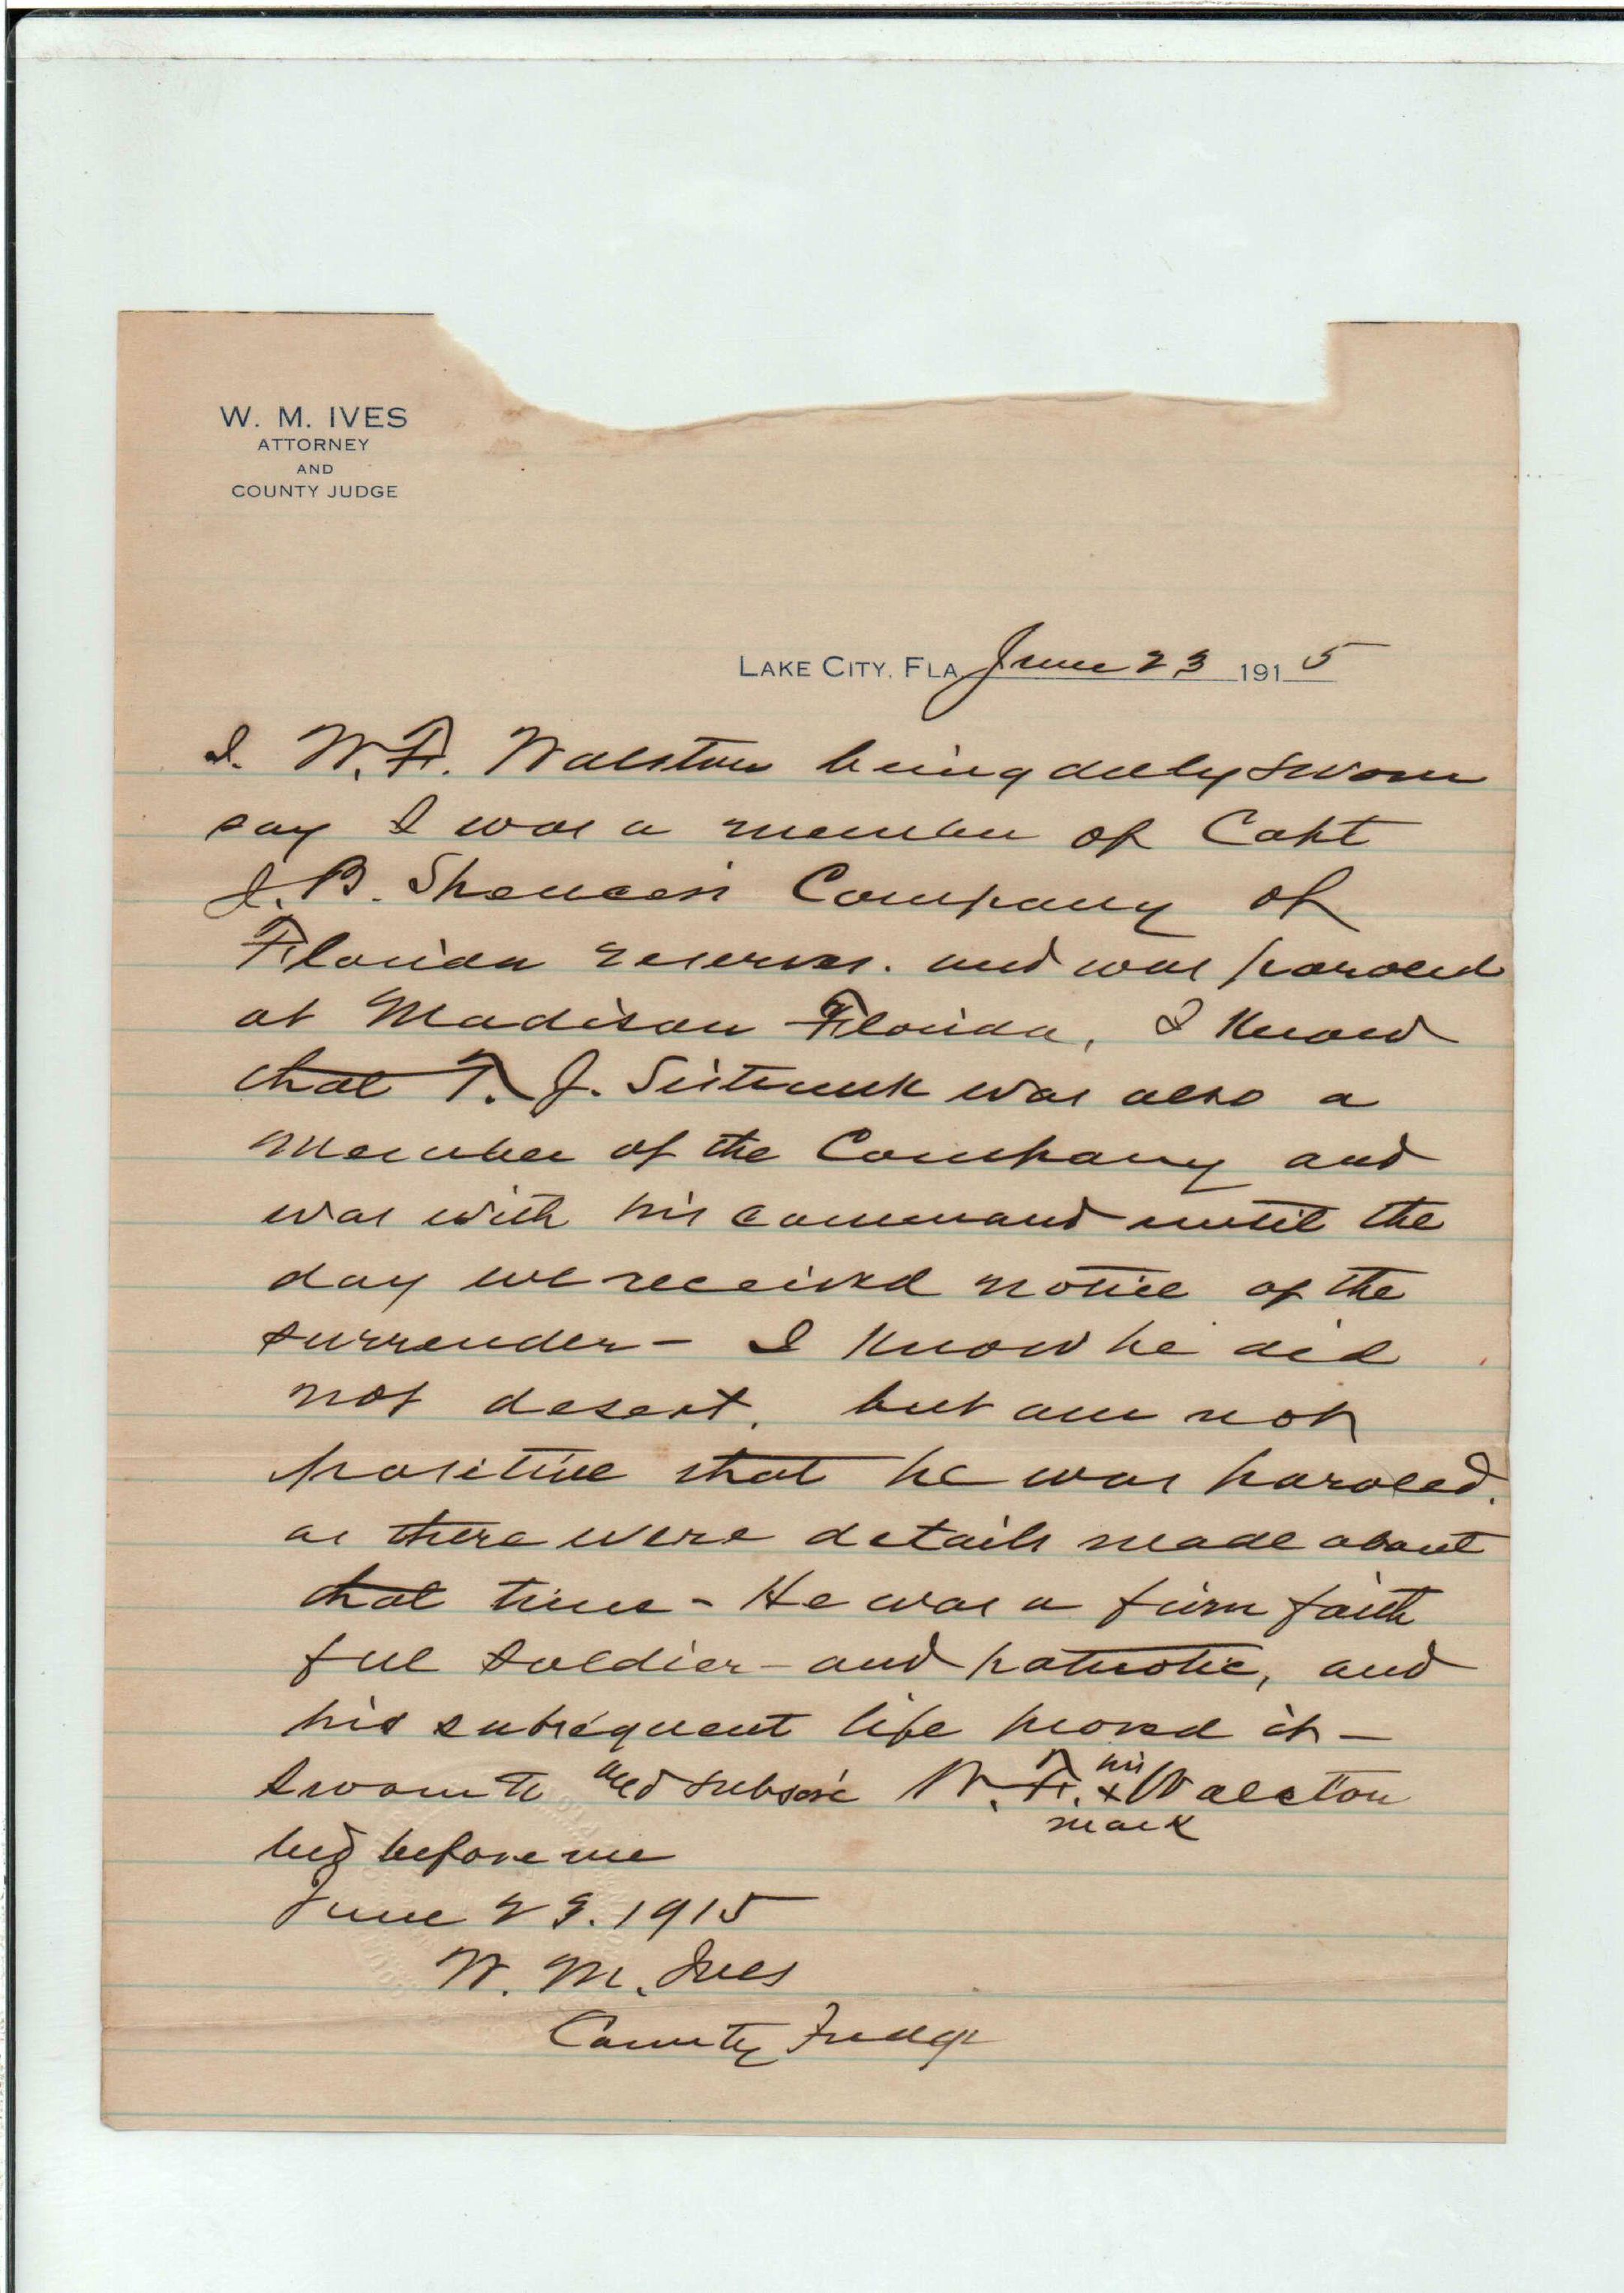 W. M. IVES
ATTORNEY
AND
COUNTY JUDGE
LAKE CITY, FLA. June 23 1915
I. W. F. Walston being duly sworn
say I was a member of Capt
J. B. Company of
Florida reserves. and was paroled
at Madison Florida, I know
that T. J. Sistrunk was also a
member of the Company and
was with his command until the
day we received notice of the
surrender - I know he did
not desert, but am not
positive that he was paroled.
as there were details made about
that time - He was a firm faith
ful soldier - and patriotic, and
his subsequent life proved it -
Sworn to and subscri W. F. his x Walston
mark
bed before me
June 23. 1915
W. M. Ives
County Judge